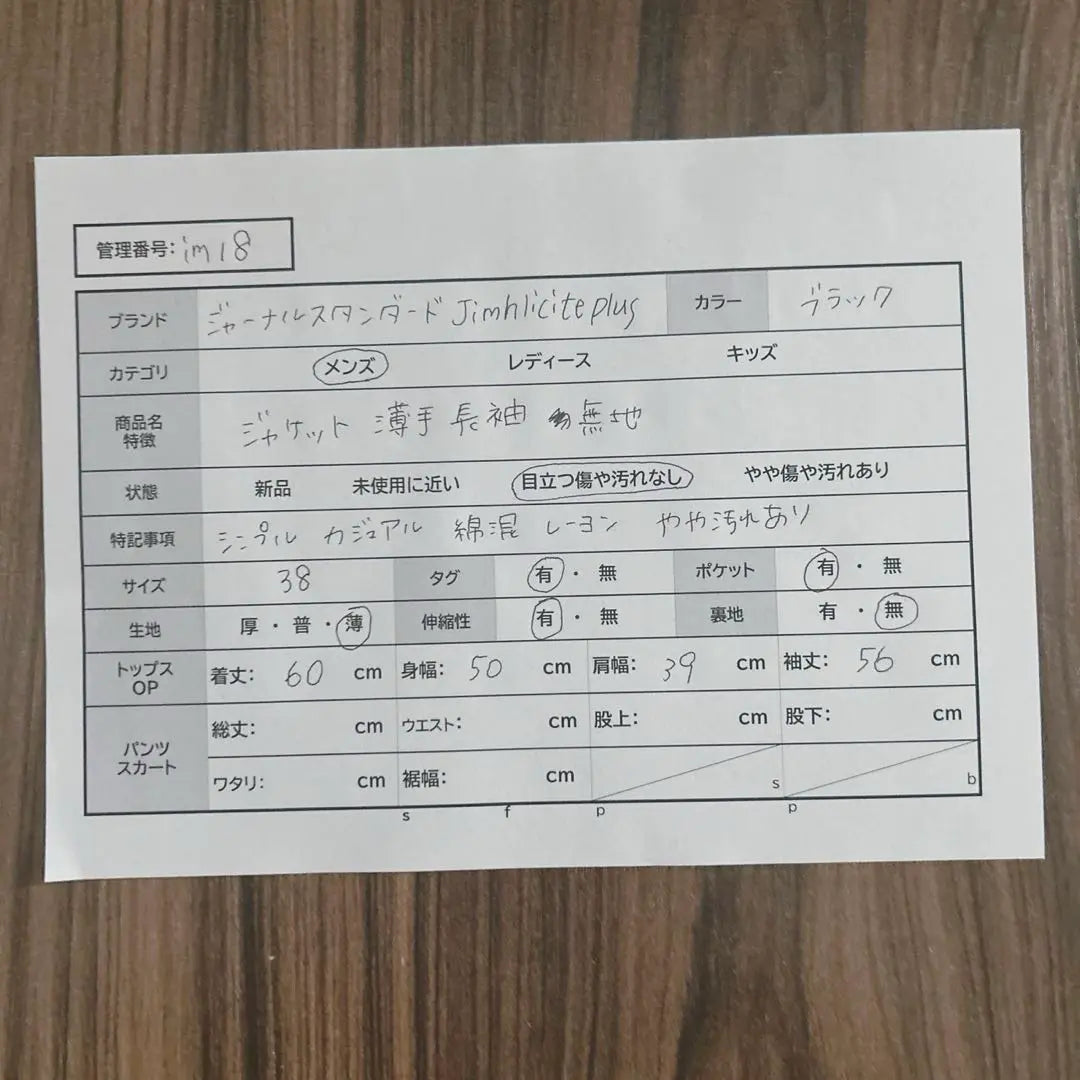 管理番号: im18
ブランド ジャーナルスタンダード Jimhlicite plus カラー ブラック
カテゴリ メンズ レディース キッズ
商品名 特徴 ジャケット 薄手 長袖 無地
状態 新品 未使用に近い 目立つ傷や汚れなし やや傷や汚れあり
特記事項 シンプル カジュアル 綿混 レーヨン やや汚れあり
サイズ 38 タグ 有・無 ポケット 有・無
生地 厚・普・薄 伸縮性 有・無 裏地 有・無
トップス OP 着丈: 60 cm 身幅: 50 cm 肩幅: 39 cm 袖丈: 56 cm
パンツ スカート 総丈: cm ウエスト: cm 股上: cm 股下: cm
ワタリ: cm 裾幅: cm s b
s f p p